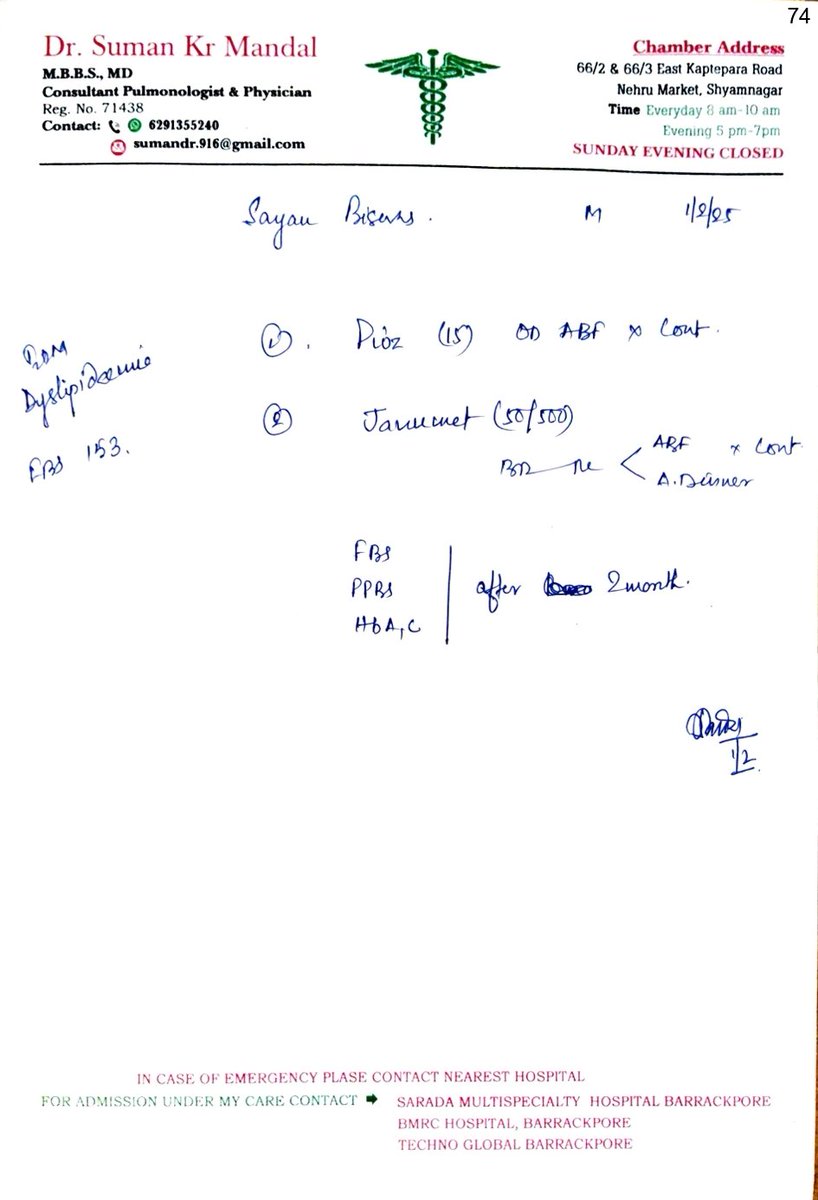 74
Dr. Suman Kr Mandal
M.B.B.S., MD
Consultant Pulmonologist & Physician
Reg. No. 71438
Contact: 6291355240
sumandr.916@gmail.com
Chamber Address
66/2 & 66/3 East Kaptepara Road
Nehru Market, Shyamnagar
Time Everyday 8 am-10 am
Evening 5 pm-7pm
SUNDAY EVENING CLOSED
Sayan Biswas. M 1/2/25
T2DM
Dyslipidaemia
FBS 153.
1. Pioz (15) OD ABF x Cont.
2 Janumet (50/500)
BD ABF x Cont.
A. Dinner
FBS
PPBS
HbA1C
after 2 month.
1/2
IN CASE OF EMERGENCY PLASE CONTACT NEAREST HOSPITAL
FOR ADMISSION UNDER MY CARE CONTACT ➡ SARADA MULTISPECIALTY HOSPITAL BARRACKPORE
BMRC HOSPITAL, BARRACKPORE
TECHNO GLOBAL BARRACKPORE